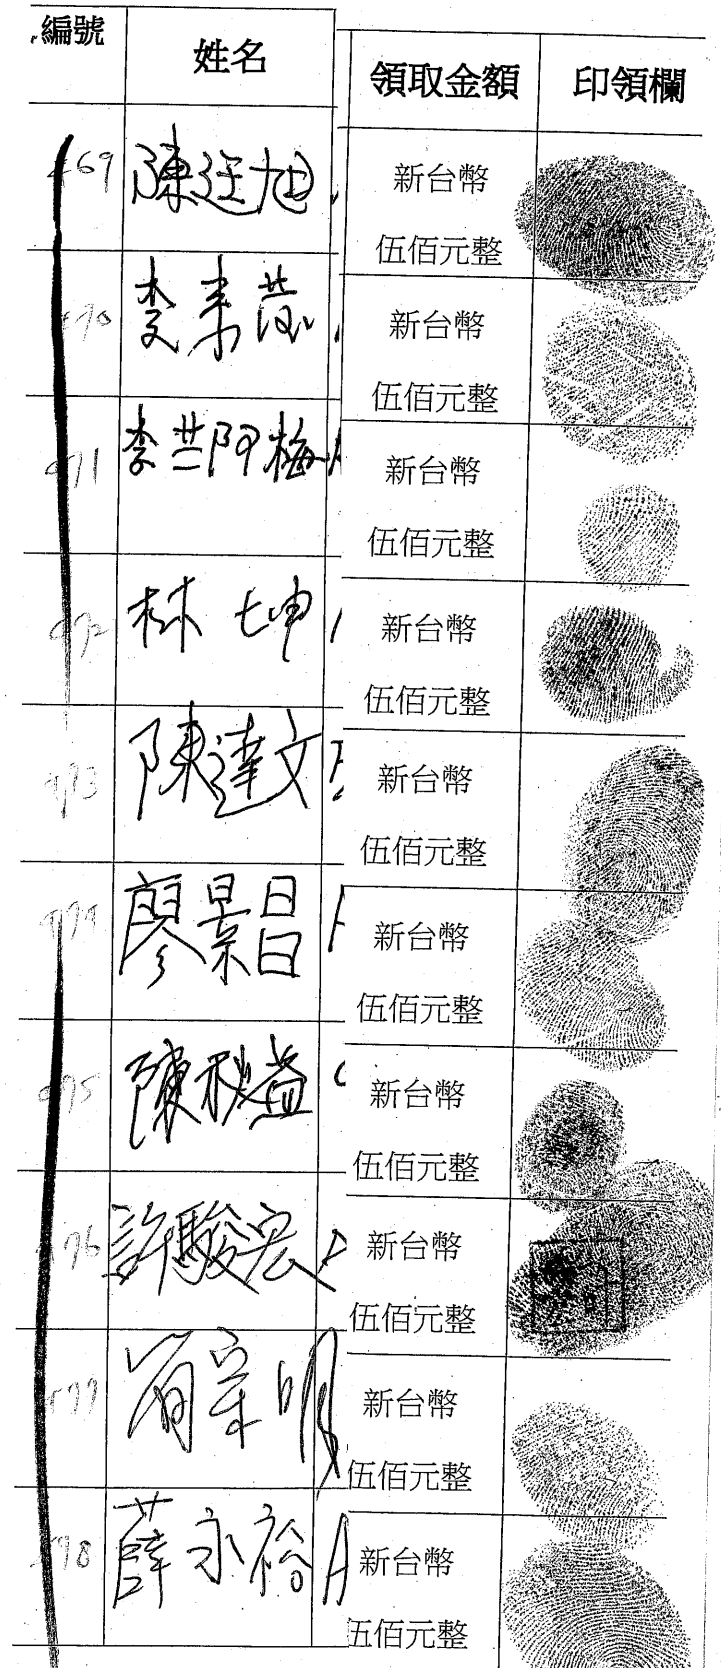 編號 姓名 領取金額 印領欄
469 陳廷旭 新台幣
伍佰元整
470 李來 新台幣
伍佰元整
471 李苎阿梅 新台幣
伍佰元整
472 林七坤 新台幣
伍佰元整
473 陳達文 新台幣
伍佰元整
474 廖景昌 新台幣
伍佰元整
475 陳秋益 新台幣
伍佰元整
476 許駿宏 新台幣
伍佰元整
477 明 新台幣
伍佰元整
478 薛永裕 新台幣
伍佰元整